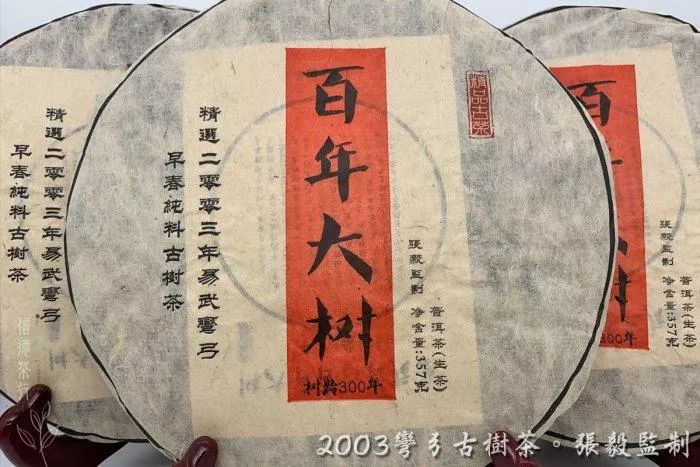 精選二零零三年易武彎弓
早春純料古樹茶
精選二零零三年易武彎弓
早春純料古樹茶
百年大树
树龄300年
精品古茶
張毅監制
普洱茶(生茶)
净含量:357克
百
300年
張毅監制
普洱茶(生茶)
净含量:357克
信德茶行
2003彎弓古樹茶。張毅監制